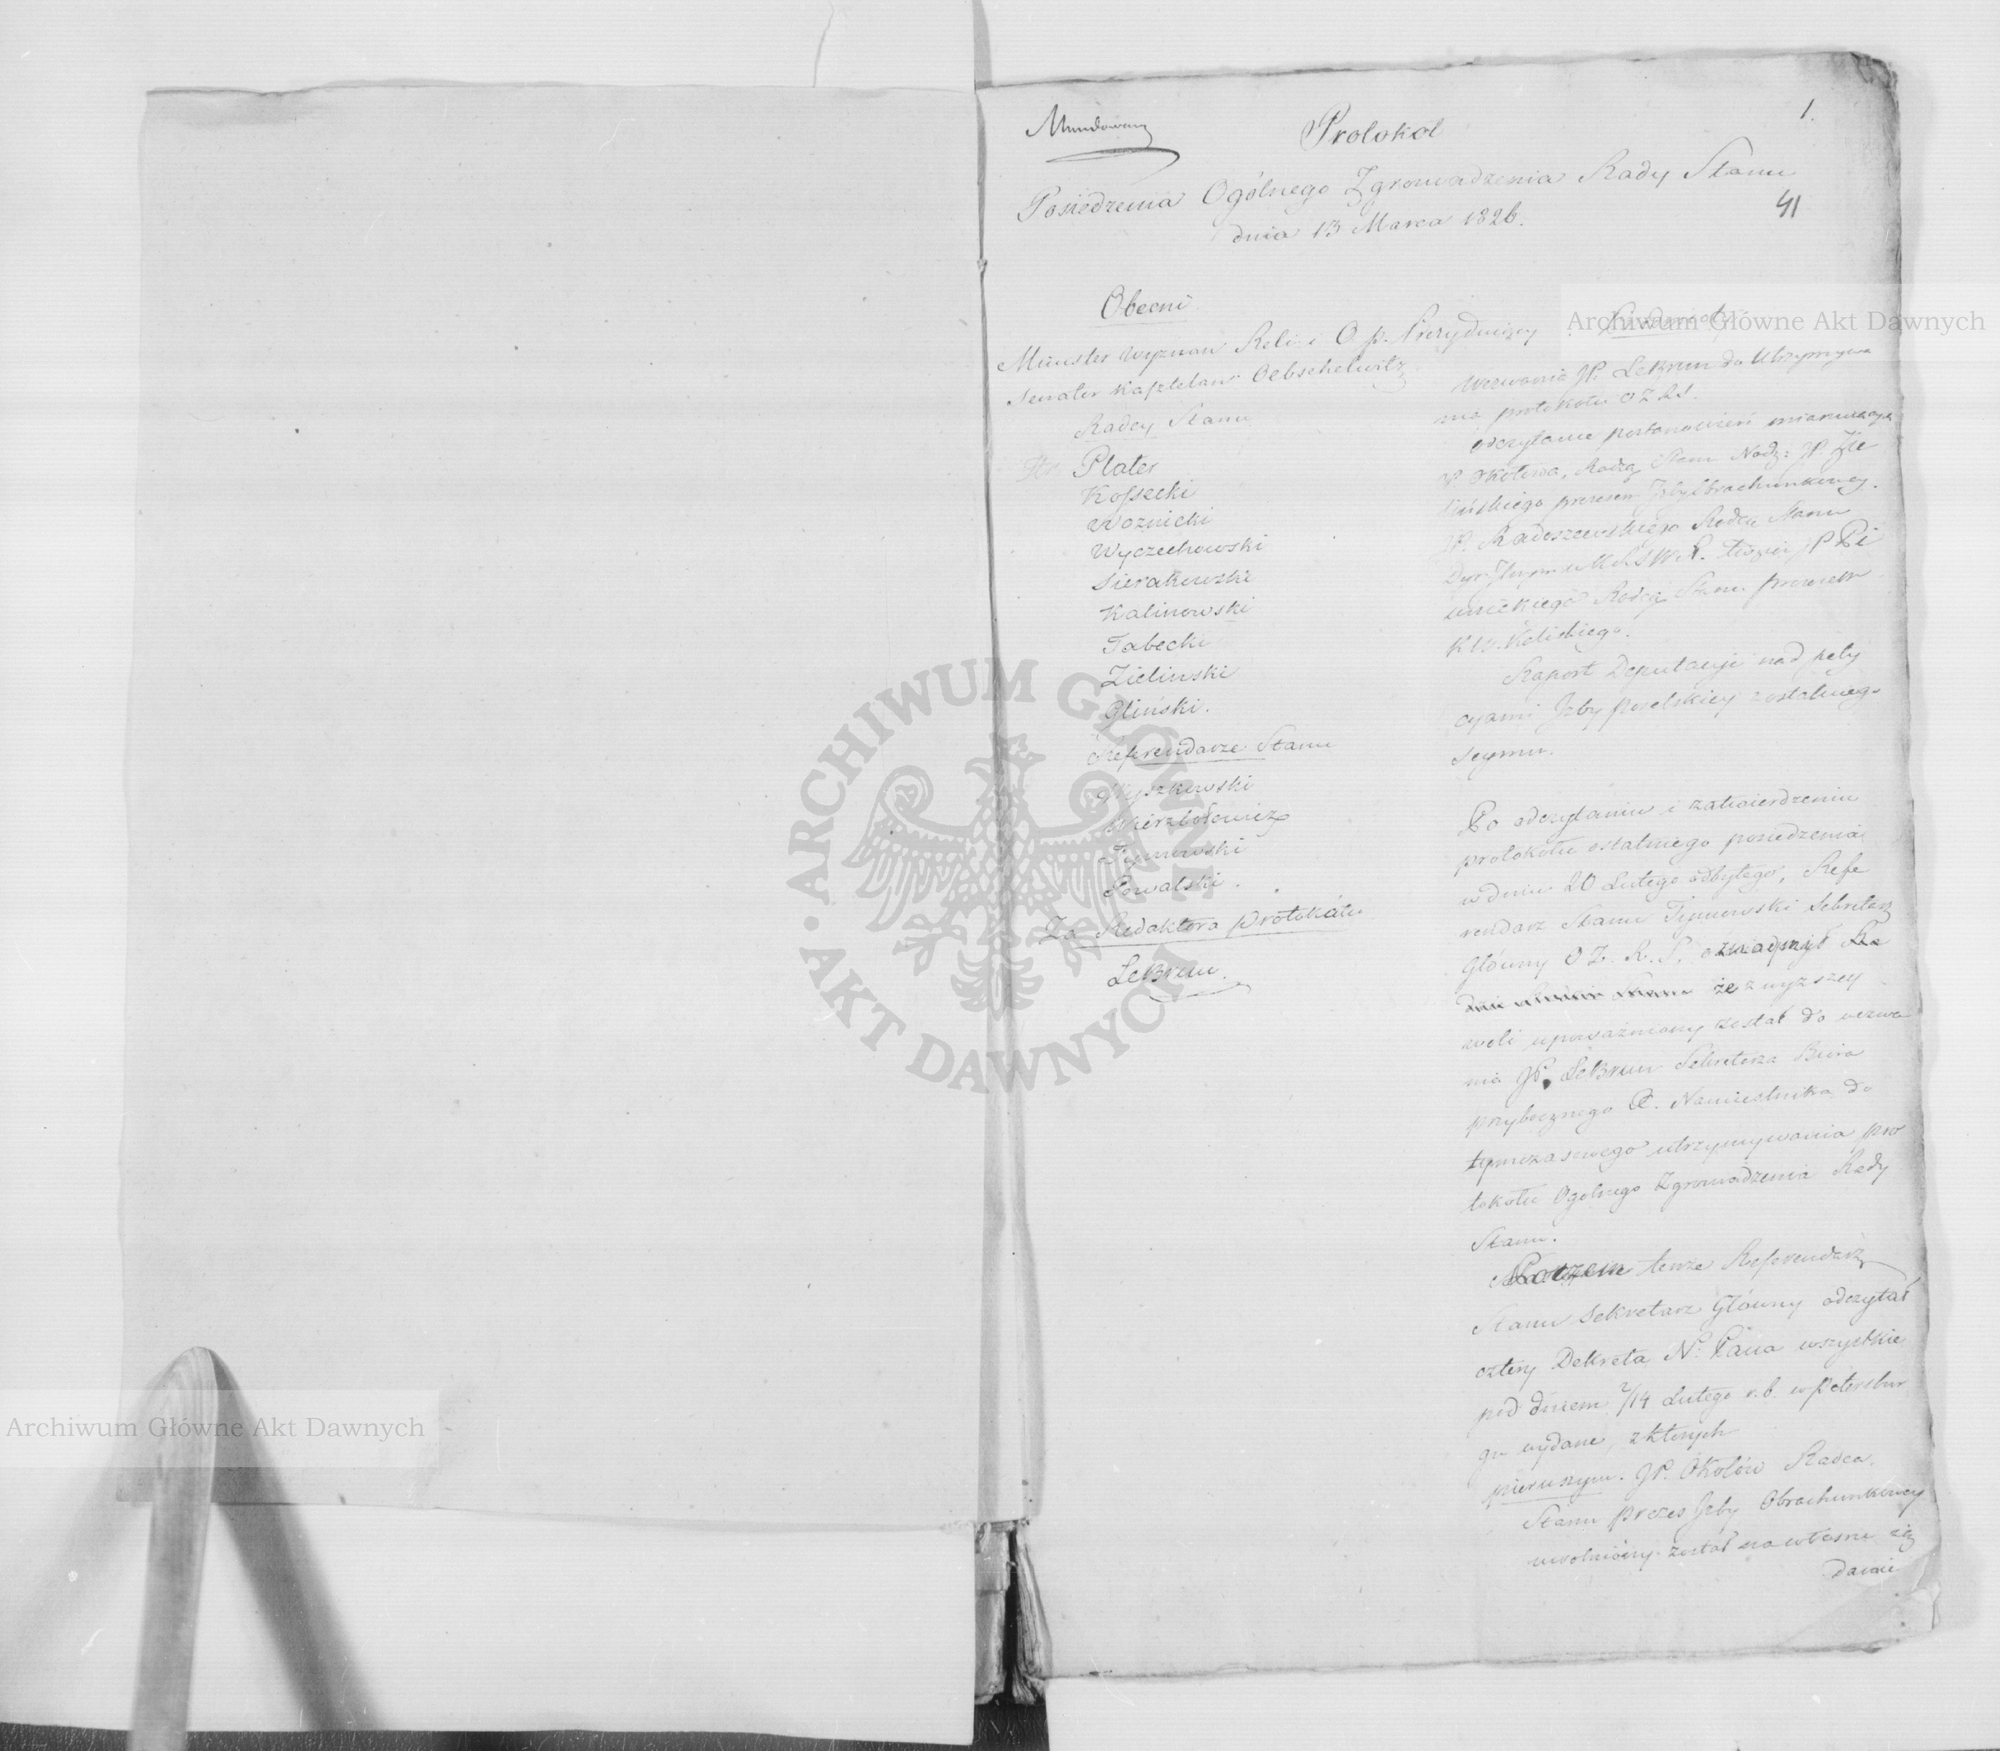 Mundowany
Protokol
1.
Posiedzenia Ogólnego Zgromadzenia Rady Stanu
41
dnia 13 Marca 1826.
Obecni
Minister Wyznań Reli: i O. p. Prezyduiący
Senator Kasztelan Oebschelwitz
Radcy Stanu
Hr. Plater
Kossecki
Woznicki
Wyczechowski
Sierakowski
Kalinowski
Tabecki
Zielinski
Gliński.
Referendarze Stanu
Wyszkowski
Wierzbołowicz
Tymowski
Kowalski.
Za Redaktora protokółu
LeBrun.
Wezwanie JP. LeBrun do Utrzymywa
nia protokołu OZRS.
Odczytanie postanowień mianuiących
JP. Okołowa, Radcą Stanu Nadz: JP. Zie
lińskiego prezesem Izby Obrachunkowey.
JP. Radoszewskiego Radcą Stanu
Kaliskiego.
Raport Deputacyi nad pety
cyami Izby poselskiey z ostatniego
Seymu.
Po odczytaniu i zatwierdzeniu
protokółu ostatniego posiedzenia
w dniu 20 Lutego odbytego, Refe
rendarz Stanu Tymowski Sekretarz
Główny O Z. R. S.
że z wyższey
woli upoważniony został do wezwa
nia JP. LeBrun Sekretarza Biura
przybocznego X. Namiestnika do
tymczasowego utrzymywania pro
tokółu Ogolnego Zgromadzenia Rady
Stanu.
Poczem tenże Referendarz
Stanu Sekretarz Główny odczytał
cztery Dekreta N. Pana wszystkie
pod dniem 2/14 Lutego r.b. w Petersbur
gu wydane, z których
pierwszym. JP. Okołów Radca
Stanu prezes Izby Obrachunkowey
uwolniony został na własne żą
danie
Archiwum Główne Akt Dawnych
Archiwum Główne Akt Dawnych
ARCHIWUM GŁÓWNE AKT DAWNYCH